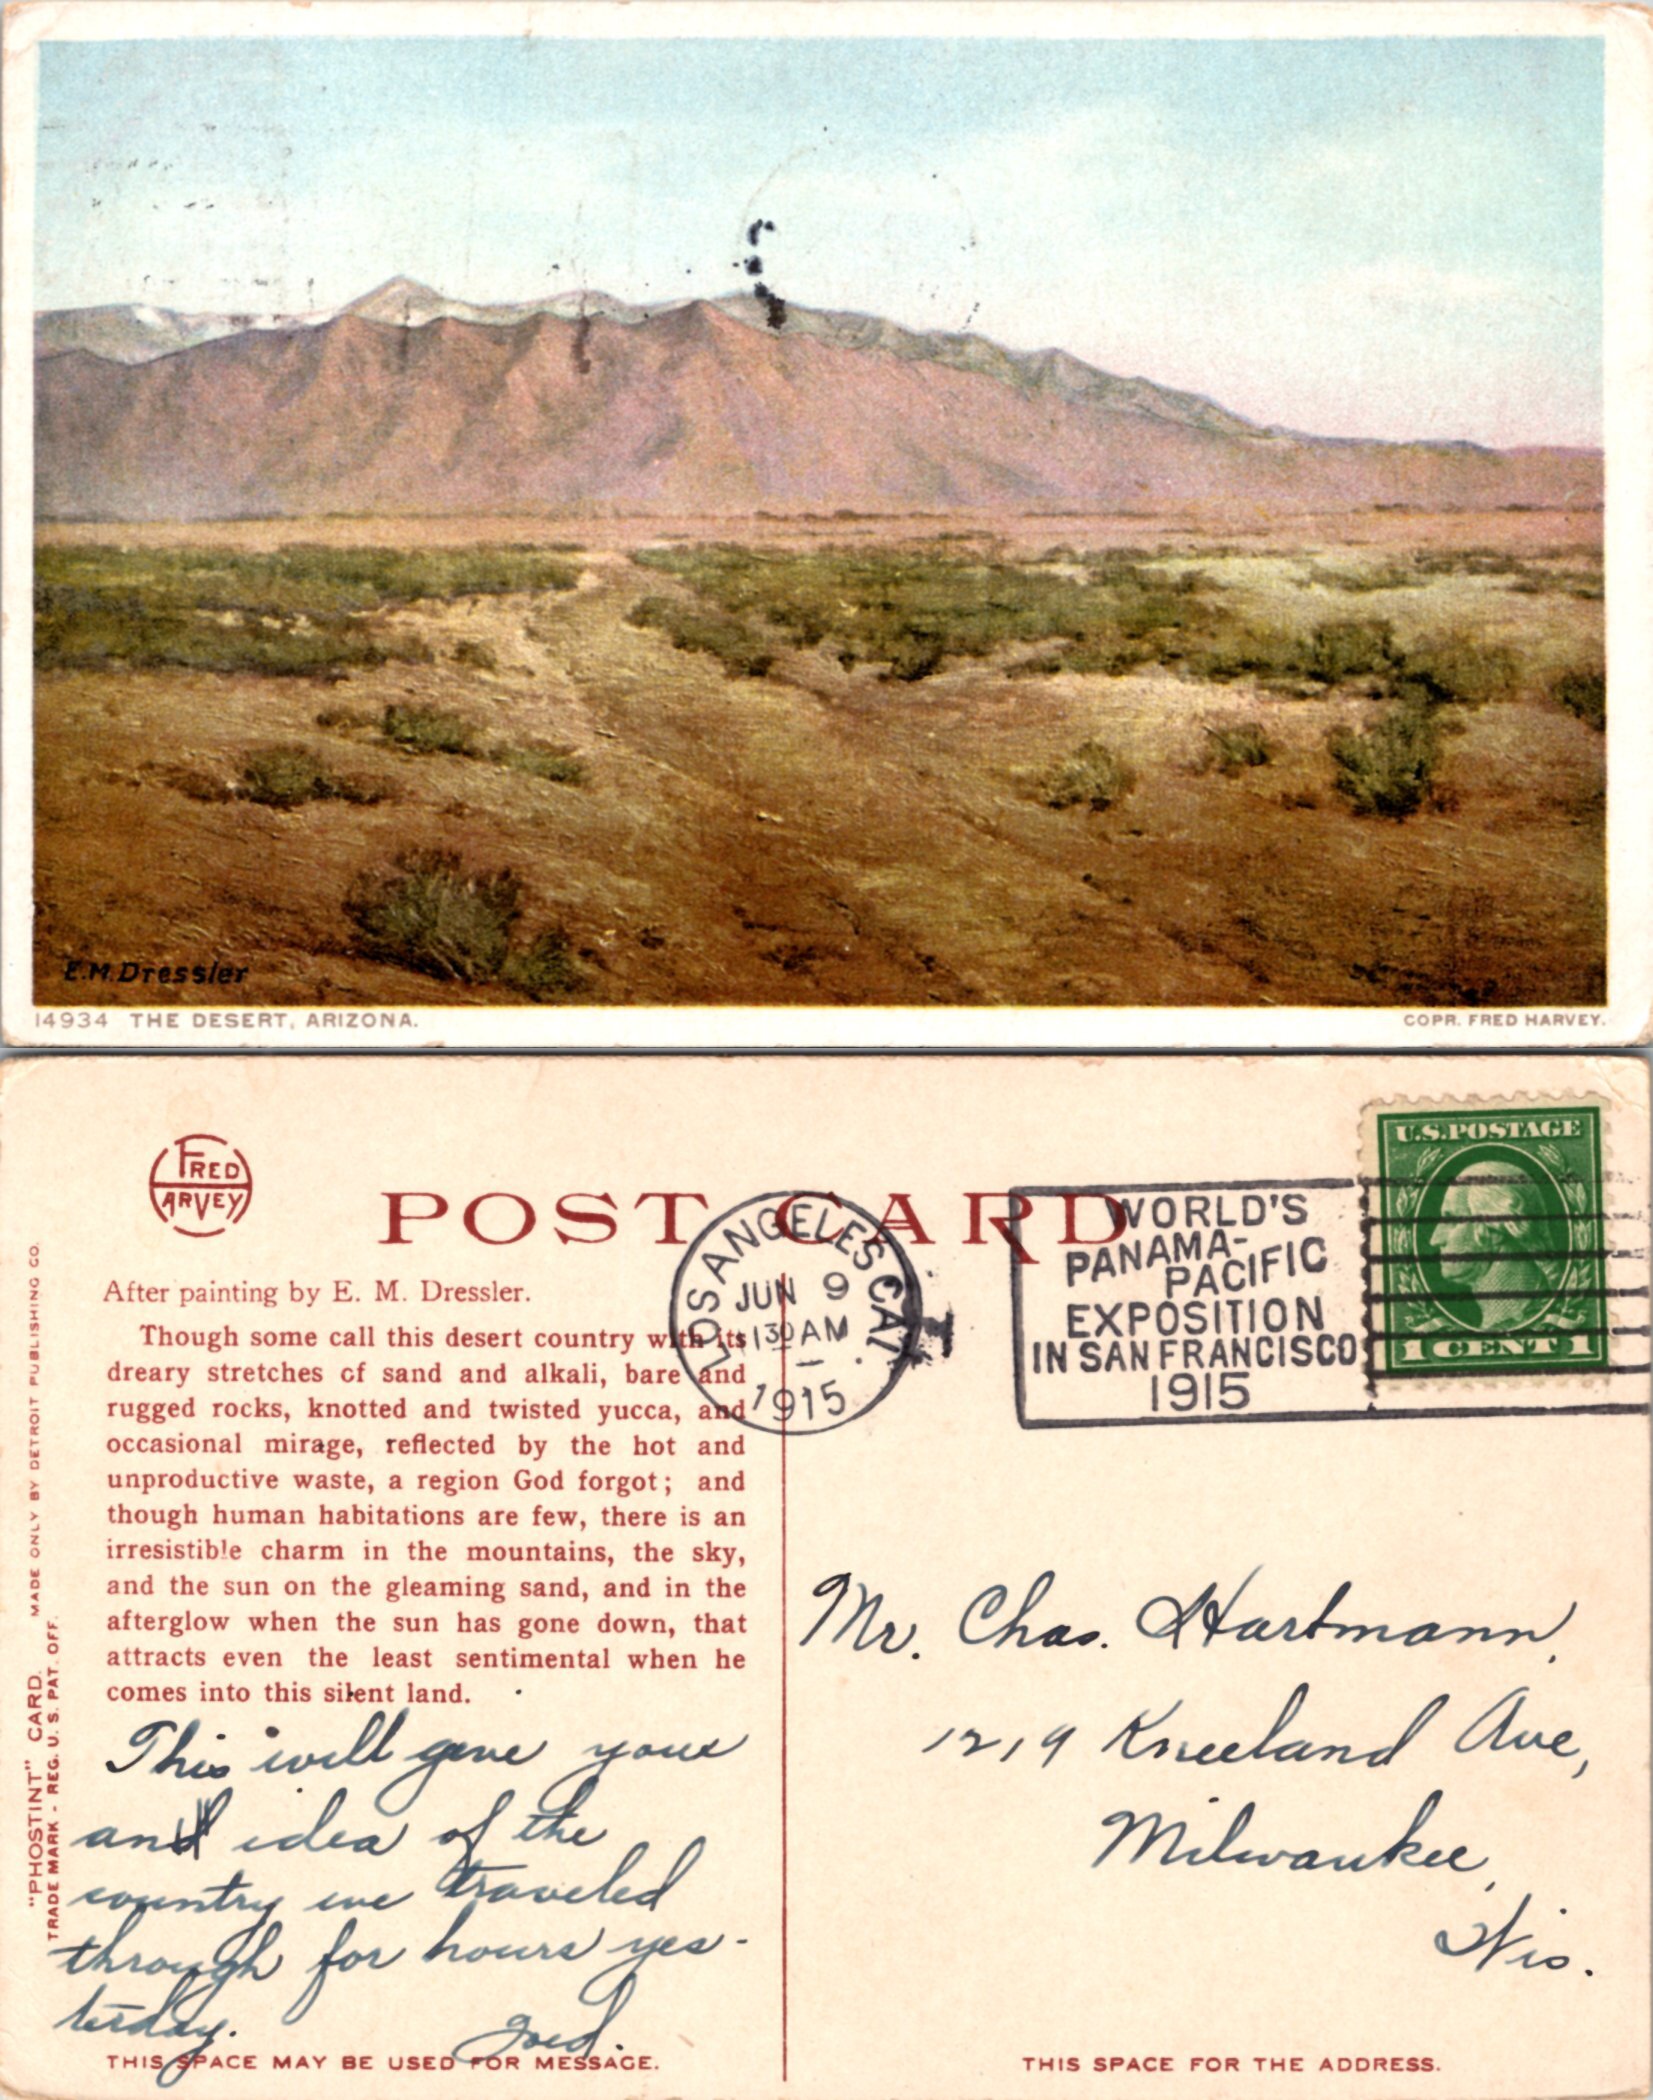 E.M. Dressler
14934 THE DESERT, ARIZONA.
COPR. FRED HARVEY.
FRED
HARVEY
POST CARD
LOS ANGELES CAL
JUN 9
130 AM
1915
1
WORLD'S
PANAMA-
PACIFIC
EXPOSITION
IN SAN FRANCISCO
1915
U.S. POSTAGE
1 CENT 1
After painting by E. M. Dressler.
Though some call this desert country with its
dreary stretches of sand and alkali, bare and
rugged rocks, knotted and twisted yucca, and
occasional mirage, reflected by the hot and
unproductive waste, a region God forgot; and
though human habitations are few, there is an
irresistible charm in the mountains, the sky,
and the sun on the gleaming sand, and in the
afterglow when the sun has gone down, that
attracts even the least sentimental when he
comes into this silent land.
"PHOSTINT" CARD. MADE ONLY BY DETROIT PUBLISHING CO.
TRADE MARK - REG. U. S. PAT. OFF.
This will give you
an idea of the
country we traveled
through for hours yes-
terday.
THIS SPACE MAY BE USED FOR MESSAGE.
Mr. Chas. Hartmann,
1219 Kneeland Ave,
Milwaukee,
Wis.
THIS SPACE FOR THE ADDRESS.